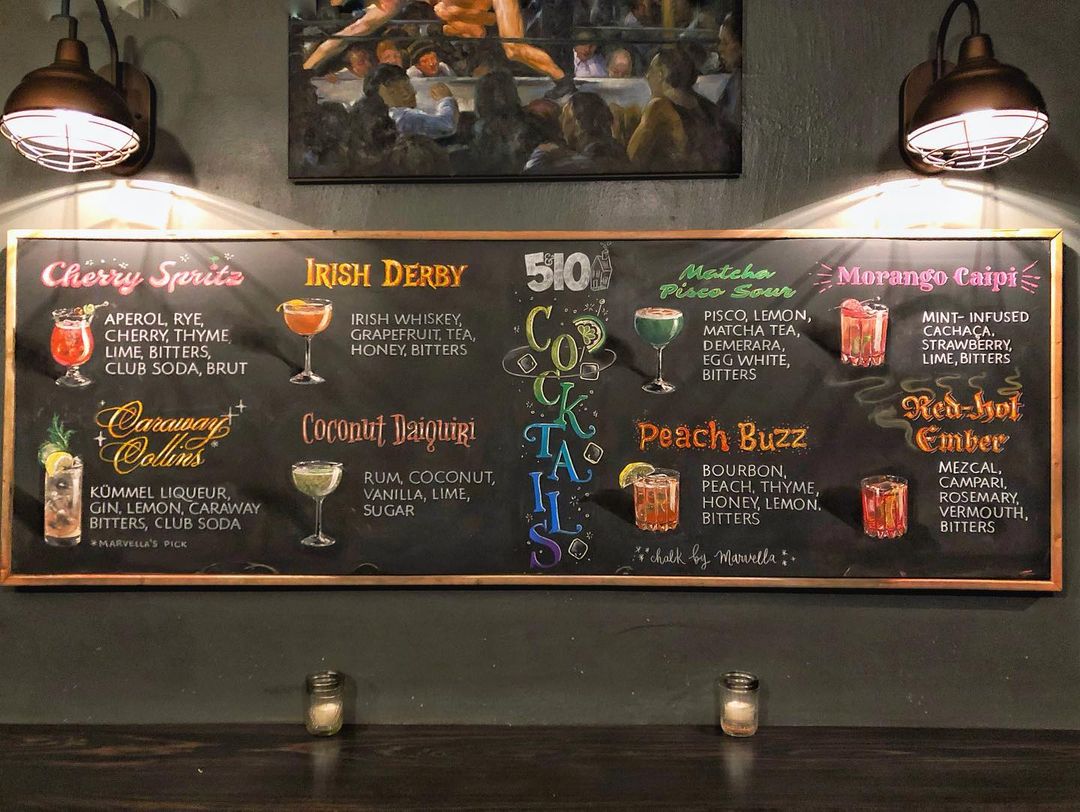 Cherry Spritz
APEROL, RYE,
CHERRY, THYME,
LIME, BITTERS,
CLUB SODA, BRUT
IRISH DERBY
IRISH WHISKEY,
GRAPEFRUIT, TEA,
HONEY, BITTERS
Caraway
Collins
KÜMMEL LIQUEUR,
GIN, LEMON, CARAWAY
BITTERS, CLUB SODA
*MARVELLA'S PICK
Coconut Daiquiri
RUM, COCONUT,
VANILLA, LIME,
SUGAR
510
COCKTAILS
Matcha
Pisco Sour
PISCO, LEMON,
MATCHA TEA,
DEMERARA,
EGG WHITE,
BITTERS
Morango Caipi
MINT-INFUSED
CACHAÇA,
STRAWBERRY,
LIME, BITTERS
Peach Buzz
BOURBON,
PEACH, THYME,
HONEY, LEMON,
BITTERS
Red-Hot
Ember
MEZCAL,
CAMPARI,
ROSEMARY,
VERMOUTH,
BITTERS
chalk by Marvella